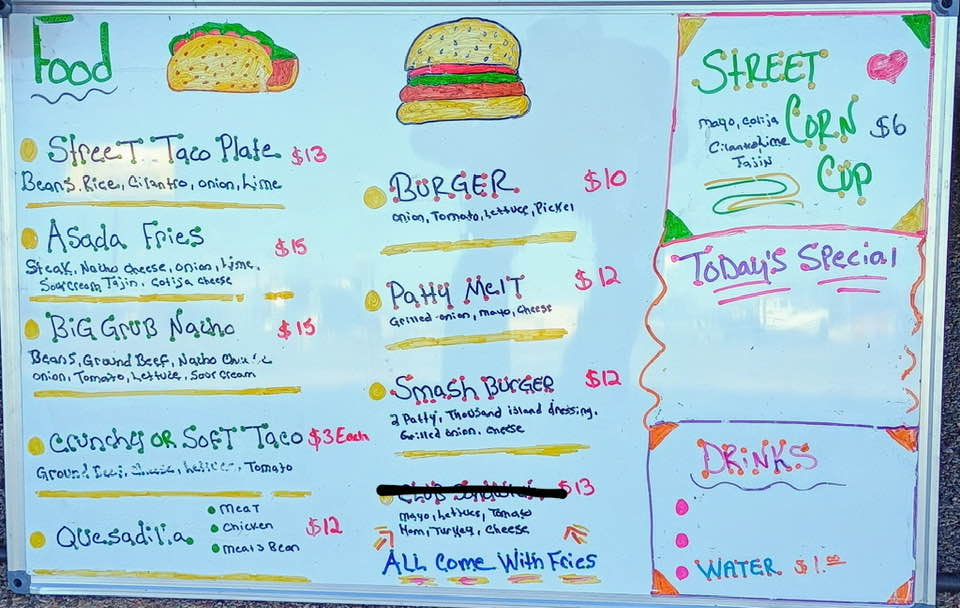 Food
Street Taco Plate $13
Beans, Rice, Cilantro, onion, Lime
Asada Fries $15
Steak, Nacho cheese, onion, Lime,
Sour cream, Tajin, Cotija cheese
BiG GruB Nacho $15
Beans, Ground Beef, Nacho
onion, Tomato, Lettuce, Sour cream
Crunchy OR Soft Taco $3 Each
Ground Beef, Cheese, Lettuce, Tomato
Quesadilla $12
Meat
Chicken
Meat & Bean
BURGER $10
onion, Tomato, Lettuce, Pickel
Patty Melt $12
Grilled onion, mayo, cheese
Smash BURGER $12
2 Patty, Thousand island dressing,
Grilled onion, cheese
CLUB Sandwich $13
mayo, Lettuce, Tomato
Ham, Turkey, cheese
ALL Come With Fries
STREET
CORN
CUP
$6
mayo, Cotija
Cilantro Lime
Tajin
ToDay's Special
DRiNKS
WATER $1.00